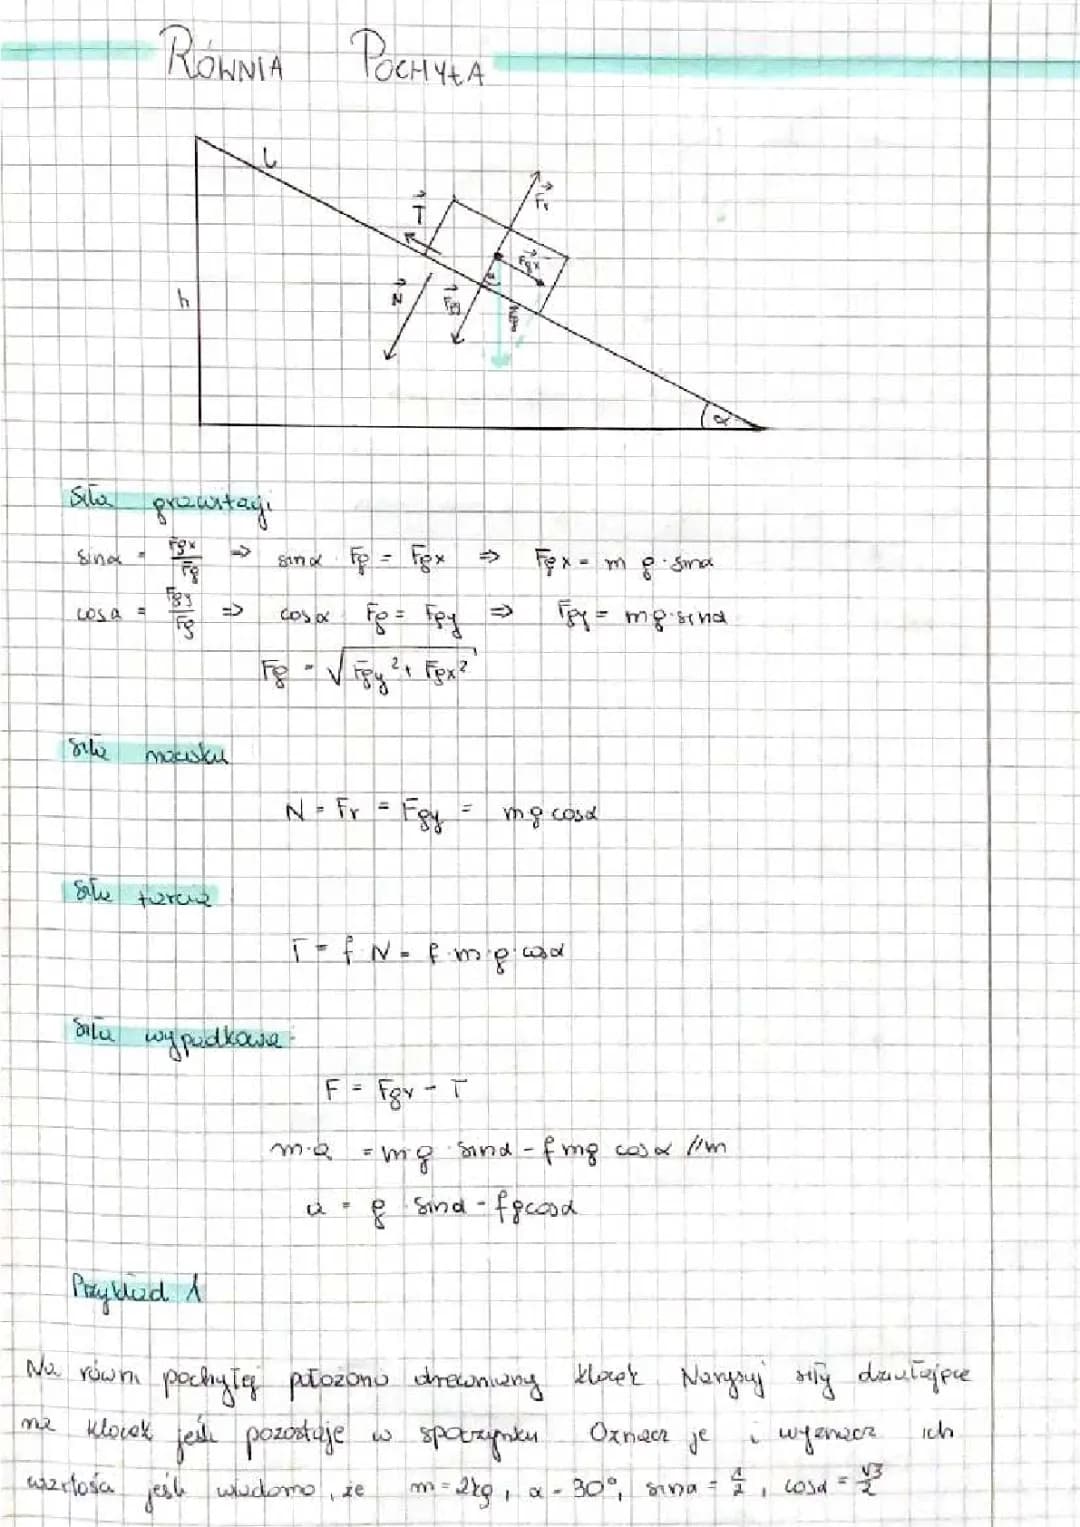 RÓWNIA POCHYŁA
L
T
Fr
Fgx
h
N
Fgy
α
Siła grawitacji
sinα = Fgx/Fg => sinα · Fg = Fgx => Fgx = m g · sinα
cosα = Fgy/Fg => cosα Fg = Fgy => Fgy = mg · sinα
Fg = √Fgy² + Fgx²
Siła nacisku
N = Fr = Fgy = mg cosα
Siła tarcia
T = f N = f · m · g · cosα
Siła wypadkowa
F = Fgx - T
m·a = mg · sinα - f mg cosα //m
a = g · sinα - fgcosα
Przykład 1
Na równi pochyłej położono drewniany klocek Narysuj siły działające
na klocek jeśli pozostaje w spoczynku Oznacz je i wyznacz ich
wartości jeśli wiadomo, że m = 2kg, α = 30°, sinα = 1/2, cosα = √3/2